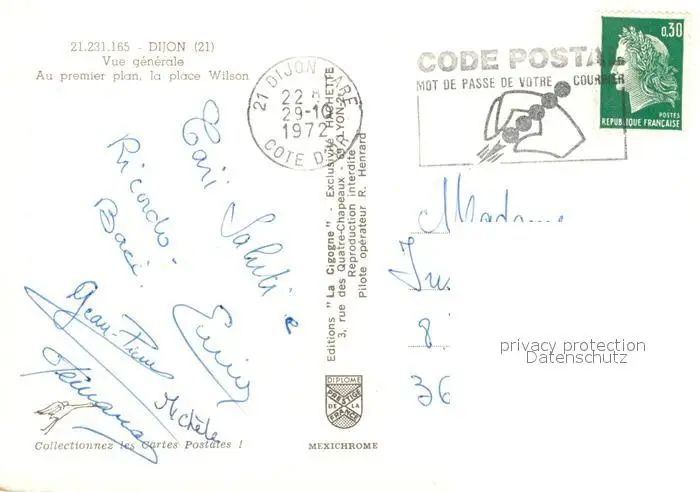 21.231.165 - DIJON (21)
Vue générale
Au premier plan, la place Wilson
21 DIJON GARE
22 H
29-10
1972
COTE D'OR
CODE POSTAL
MOT DE PASSE DE VOTRE COURRIER
0,30
POSTES
REPUBLIQUE FRANÇAISE
Cari Saluti e
Ricordo.
Baci.
Jean-Pierre
Michèle
Editions "La Cigogne" - Exclusivité HACHETTE
3, rue des Quatre-Chapeaux - 69 LYON-2e
Reproduction interdite
Pilote opérateur R. Henrard
Madame
8
36
privacy protection
Datenschutz
DIPLOME
PRESTIGE
DE LA
FRANCE
Collectionnez les Cartes Postales !
MEXICHROME